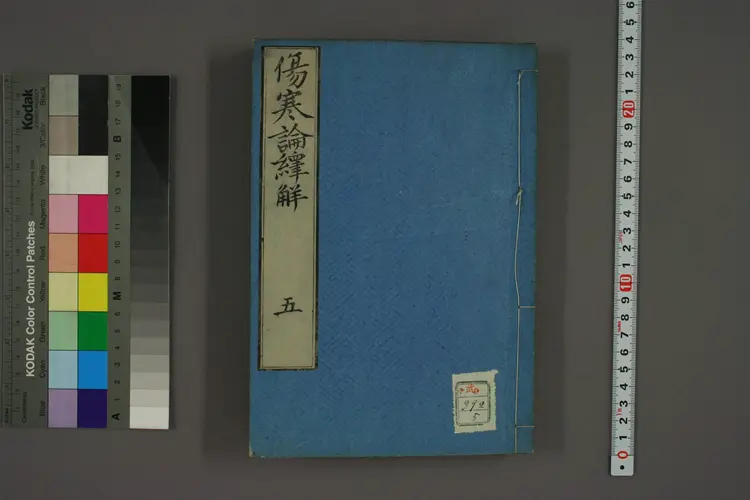 傷寒論繹解
五
292
5
Kodak
KODAK Color Control Patches
Black
3/Color
White
Magenta
Red
Yellow
Green
Cyan
Blue
Centimetres
A 1 2 3 4 5 6 M 8 9 10 11 12 13 14 15 B 17 18 19
0 1 2 3 4 5 6 7 8 9 10 1 2 3 4 5 6 7 8 9 20 1 2 3 5 6